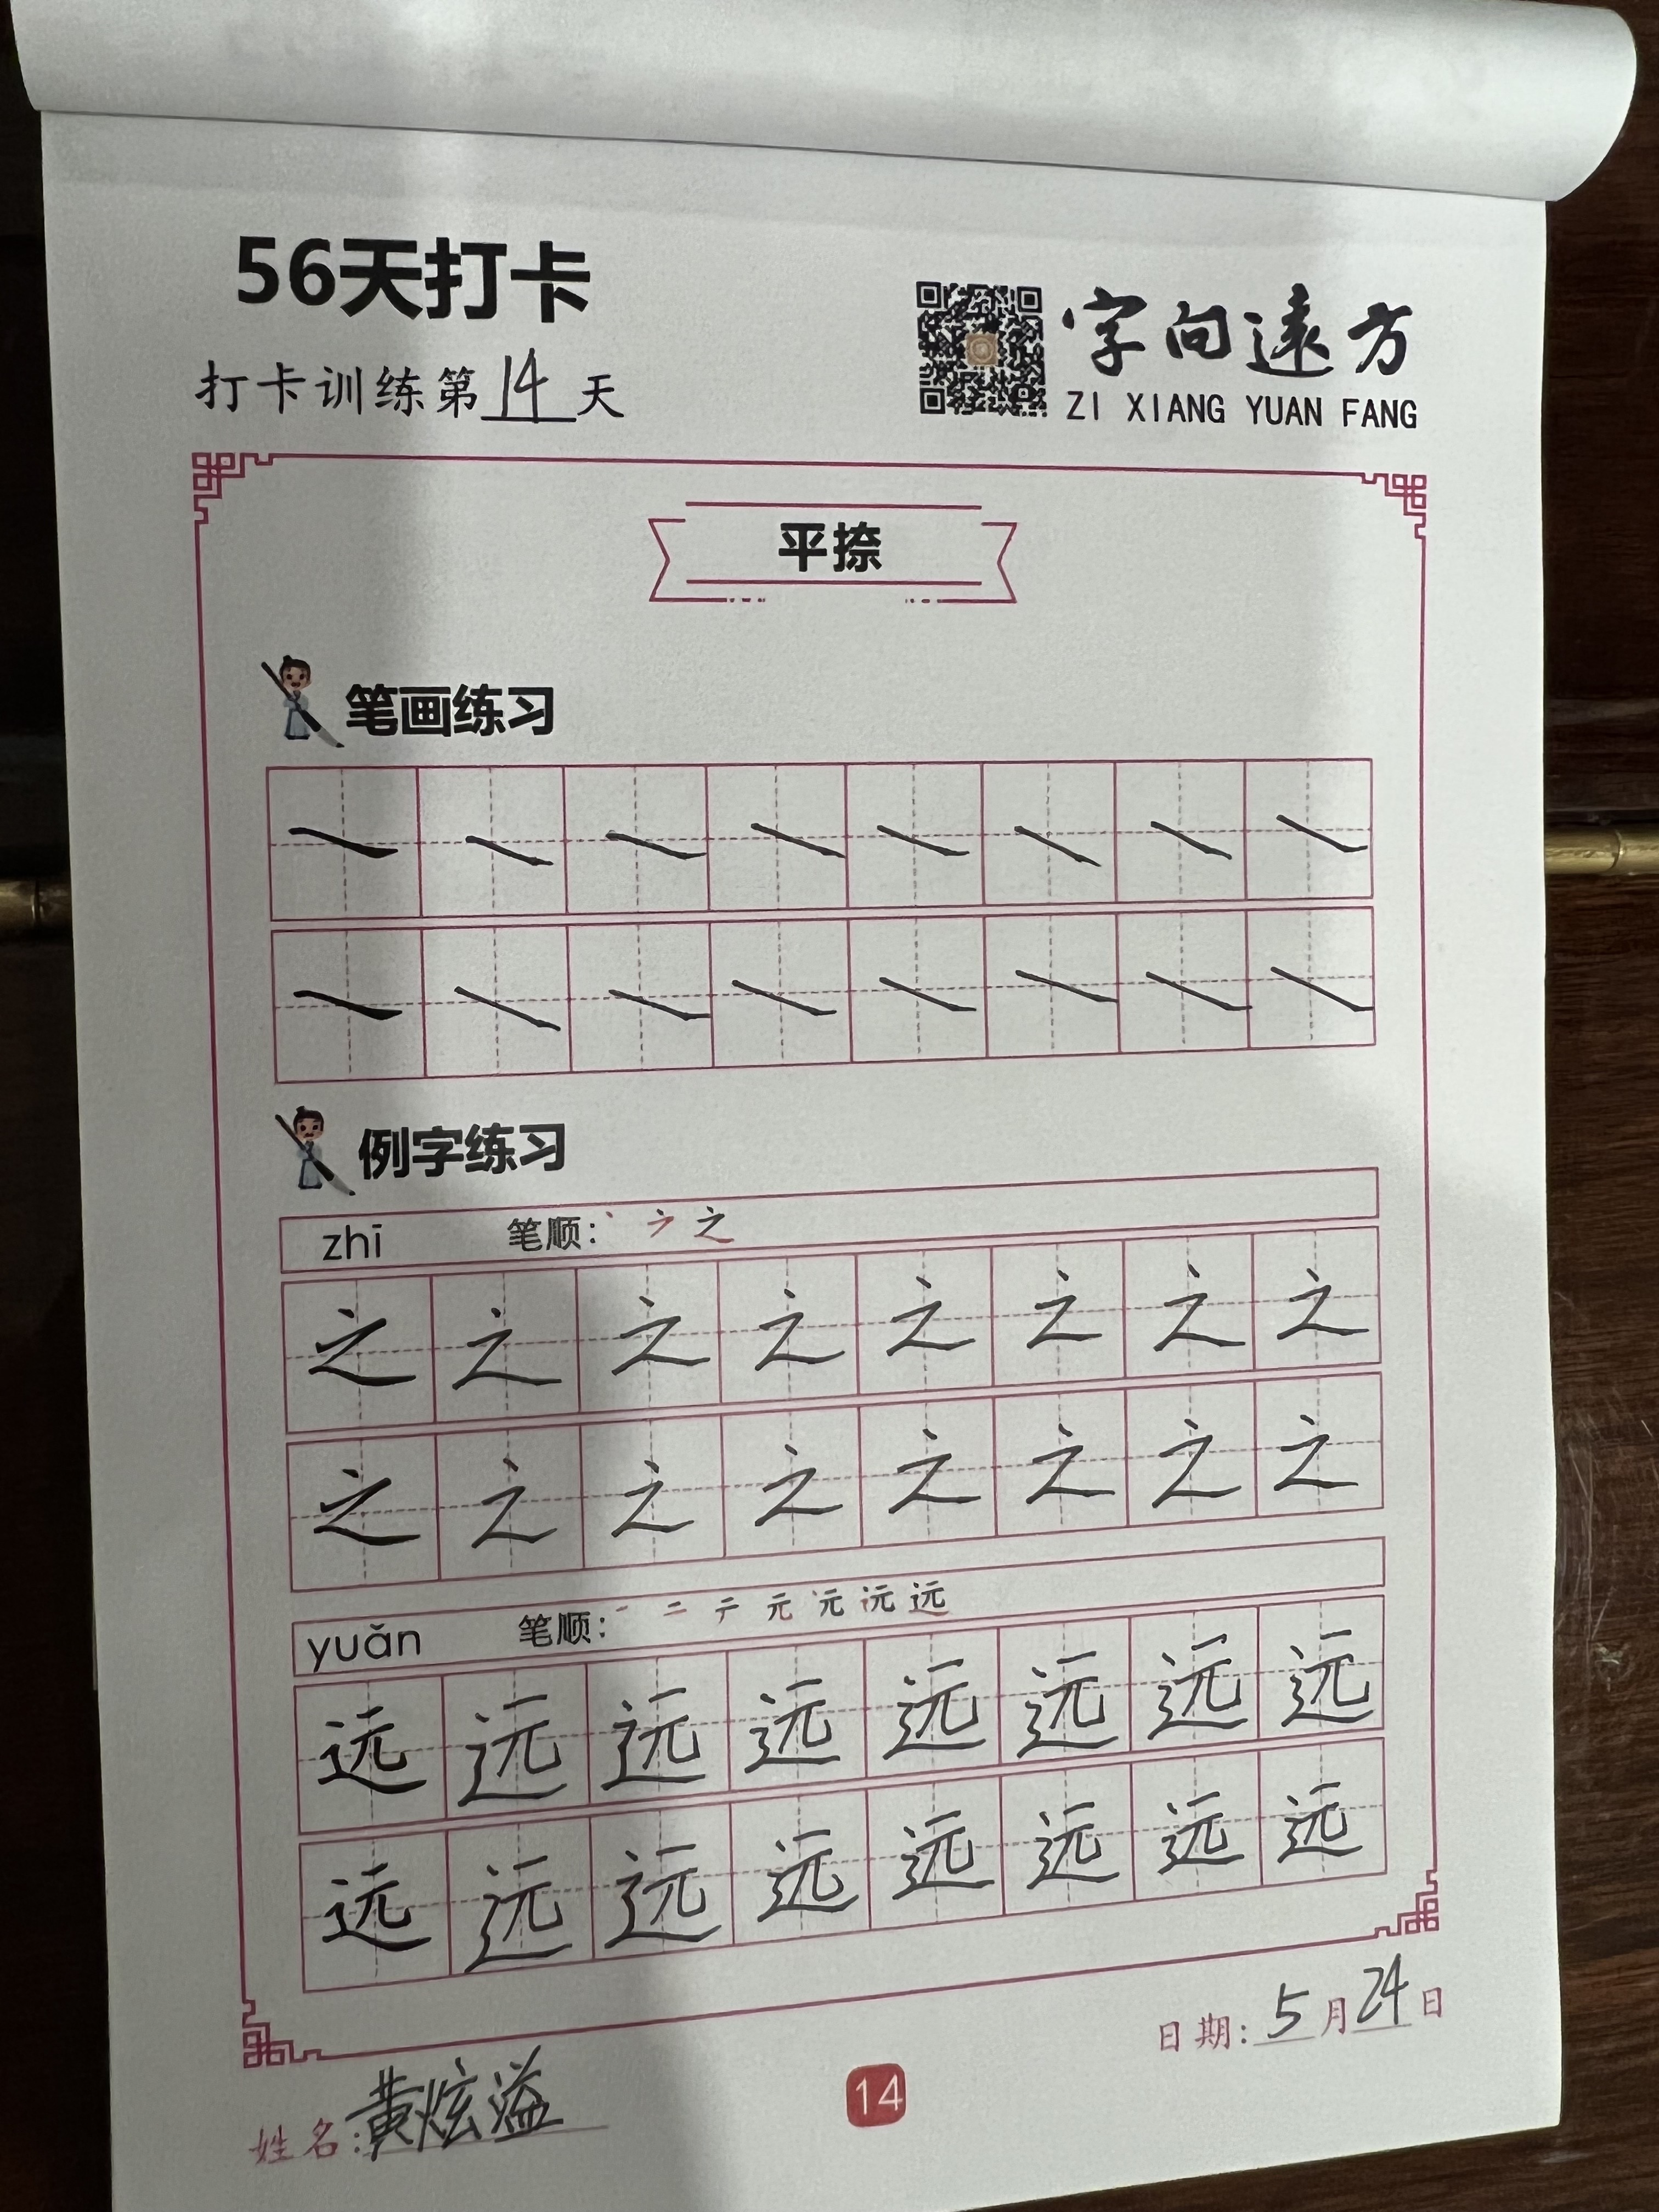 56天打卡
打卡训练第14天
字向遠方
ZI XIANG YUAN FANG
平捺
笔画练习
例字练习
zhī 笔顺:
之 之 之 之 之 之 之 之
之 之 之 之 之 之 之 之
yuǎn 笔顺: 一 二 テ 元 远
远 远 远 远 远 远 远 远
远 远 远 远 远 远 远 远
日期: 5月24日
姓名: 黄炫溢
14